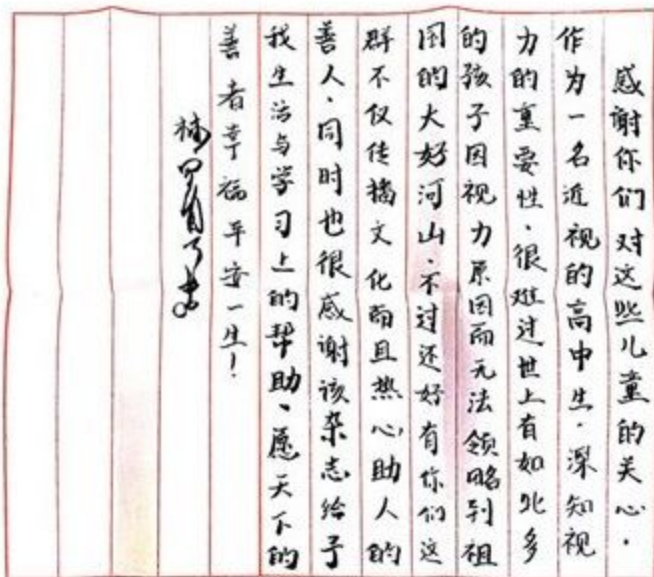 感谢你们对这些儿童的关心.
作为一名近视的高中生.深知视
力的重要性.很难过世上有如此多
的孩子因视力原因而无法领略到祖
国的大好河山.不过还好有你们这
群不仅传播文化而且热心助人的
善人.同时也很感谢该杂志给予
我生活与学习上的帮助、愿天下的
善者幸福平安一生!